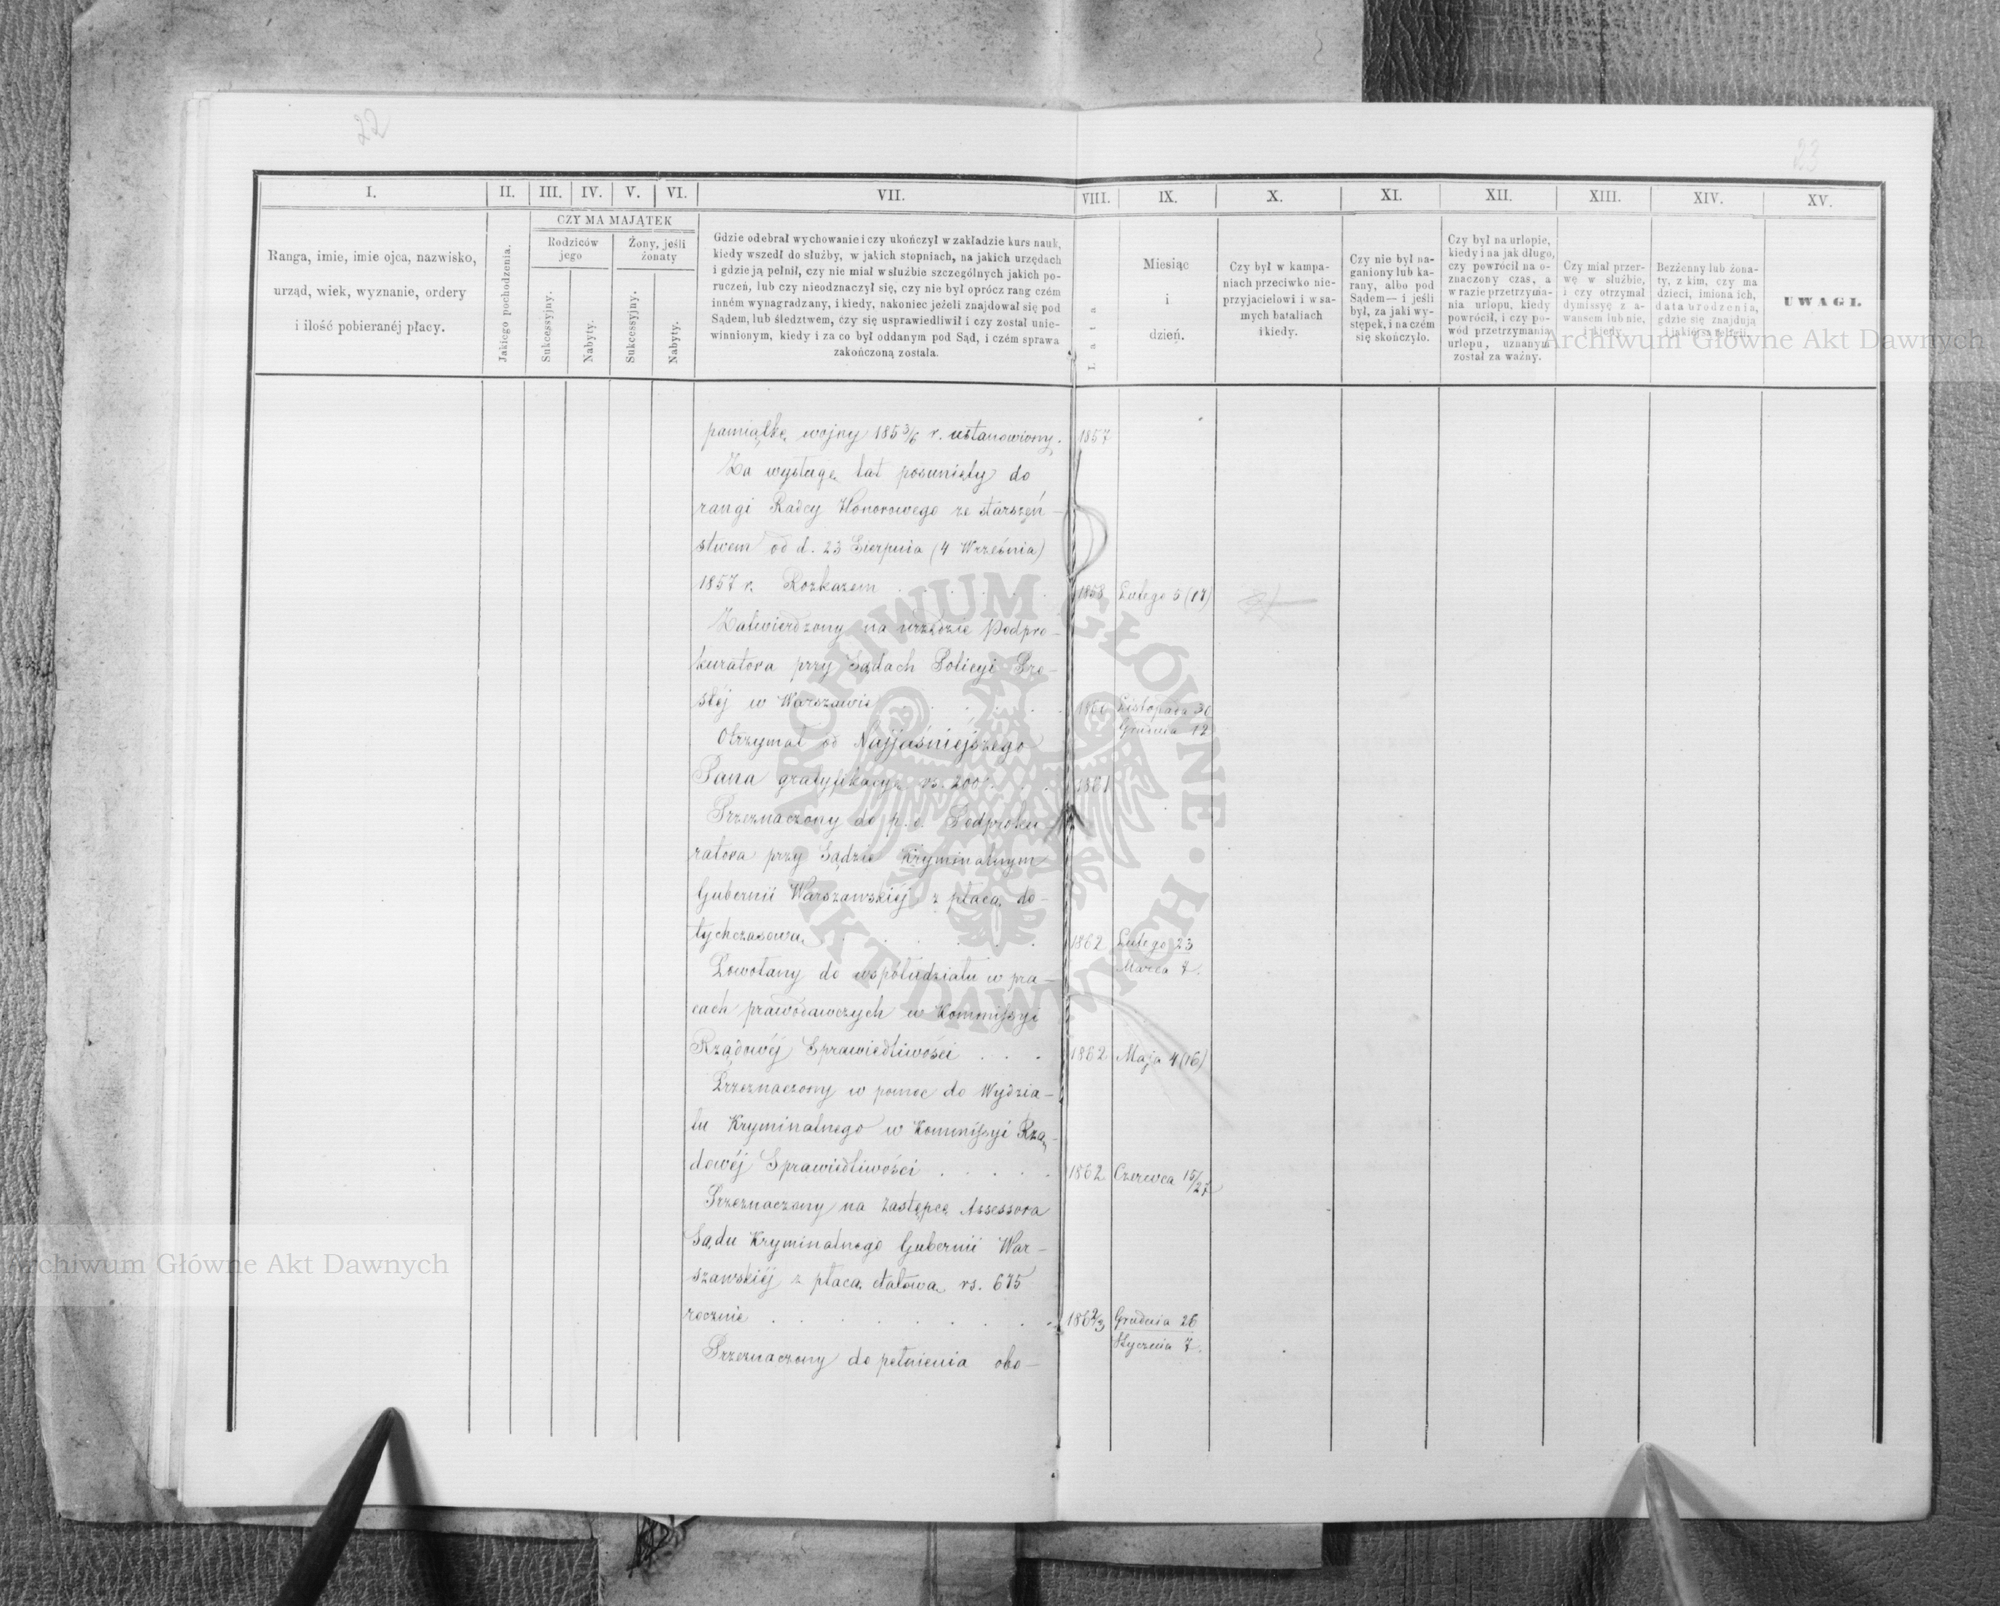 22
23
I.
II.
III.
IV.
V.
VI.
VII.
VIII.
IX.
X.
XI.
XII.
XIII.
XIV.
XV.
Ranga, imie, imie ojca, nazwisko,
urząd, wiek, wyznanie, ordery
i ilość pobieranéj płacy.
Jakiego pochodzenia.
CZY MA MAJĄTEK
Rodziców
jego
Żony, jeśli
żonaty
Sukcessyjny.
Nabyty.
Sukcessyjny.
Nabyty.
Gdzie odebrał wychowanie i czy ukończył w zakładzie kurs nauk,
kiedy wszedł do służby, w jakich stopniach, na jakich urzędach
i gdzie ją pełnił, czy nie miał w służbie szczególnych jakich po-
ruczeń, lub czy nieodznaczył się, czy nie był oprócz rang czém
inném wynagradzany, i kiedy, nakoniec jeżeli znajdował się pod
Sądem, lub śledztwem, czy się usprawiedliwił i czy został unie-
winnionym, kiedy i za co był oddanym pod Sąd, i czém sprawa
zakończoną została.
Lata
Miesiąc
i
dzień.
Czy był w kampa-
niach przeciwko nie-
przyjacielowi i w sa-
mych bataliach
i kiedy.
Czy nie był na-
ganiony lub ka-
rany, albo pod
Sądem — i jeśli
był, za jaki wy-
stępek, i na czém
się skończyło.
Czy był na urlopie,
kiedy i na jak długo,
czy powrócił na o-
znaczony czas, a
w razie przetrzyma-
nia urlopu, kiedy
powrócił, i czy po-
wód przetrzymania
urlopu, uznanym
został za ważny.
Czy miał przer-
wę w służbie,
i czy otrzymał
dymissyę z a-
wansem lub nie,
i kiedy.
Bezżenny lub żona-
ty, z kim, czy ma
dzieci, imiona ich,
data urodzenia,
gdzie się znajdują
i jakiéj są religii.
UWAGI.
pamiątkę wojny 185 3/6 r. ustanowiony. 1857
Za wysługę lat posunięty do
rangi Radcy Honorowego ze starszeń-
stwem od d. 23 Sierpnia (4 Września)
1857 r. Rozkazem . . . . . 1858 Lutego 5 (17)
Zatwierdzony na urzędzie Podpro-
kuratora przy Sądach Policyi Pro-
stéj w Warszawie . . . . . Listopada 30
Grudnia 12
Otrzymał od Najjaśniejszego
Pana gratyfikacyę rs. 200 . . . 1861
Przeznaczony do p. o. Podproku-
ratora przy Sądzie Kryminalnym
Gubernii Warszawskiéj z płacą do-
tychczasową . . . . . . 1862 Lutego 23
Marca 7.
Powołany do współudziału w pra-
cach prawodawczych w Kommissyi
Rządowéj Sprawiedliwości . . . 1862 Maja 4 (16)
Przeznaczony w pomoc do Wydzia-
łu Kryminalnego w Kommissyi Rzą-
dowéj Sprawiedliwości . . . . . 1862 Czerwca 15/27
Przeznaczony na zastępcę Assessora
Sądu Kryminalnego Gubernii War-
szawskiéj z płacą etatową rs. 675
rocznie . . . . . . . . . 186 2/3 Grudnia 26
Stycznia 7.
Przeznaczony do pełnienia obo-
ARCHIWUM GŁÓWNE AKT DAWNYCH
Archiwum Główne Akt Dawnych
Archiwum Główne Akt Dawnych